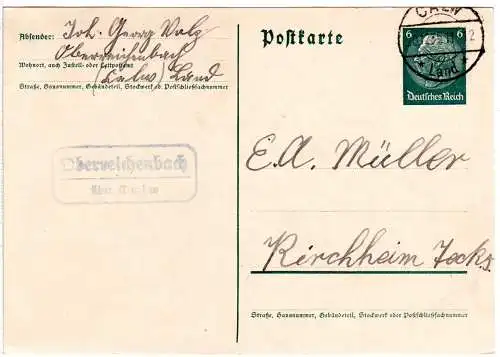 Absender: Joh. Georg Volz
Oberreichenbach
Wohnort, auch Zustell- oder Leitpostamt
(Calw) Land
Straße, Hausnummer, Gebäudeteil, Stockwerk od. Postschließfachnummer
Oberreichenbach
über Calw
Postkarte
CALW
2
Land
6 6
Deutsches Reich
E.A. Müller
Kirchheim Teck
Straße, Hausnummer, Gebäudeteil, Stockwerk oder Postschließfachnummer